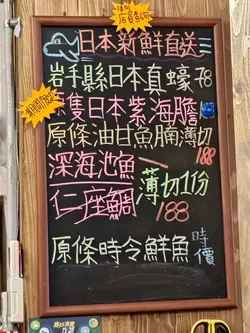 請向
店員查詢
日本新鮮直送
岩手縣日本真蠔 78
原隻日本紫海膽
原條油甘魚腩薄切
188
深海池魚
薄切1份
仁座鯛
188
原條時令鮮魚 時價